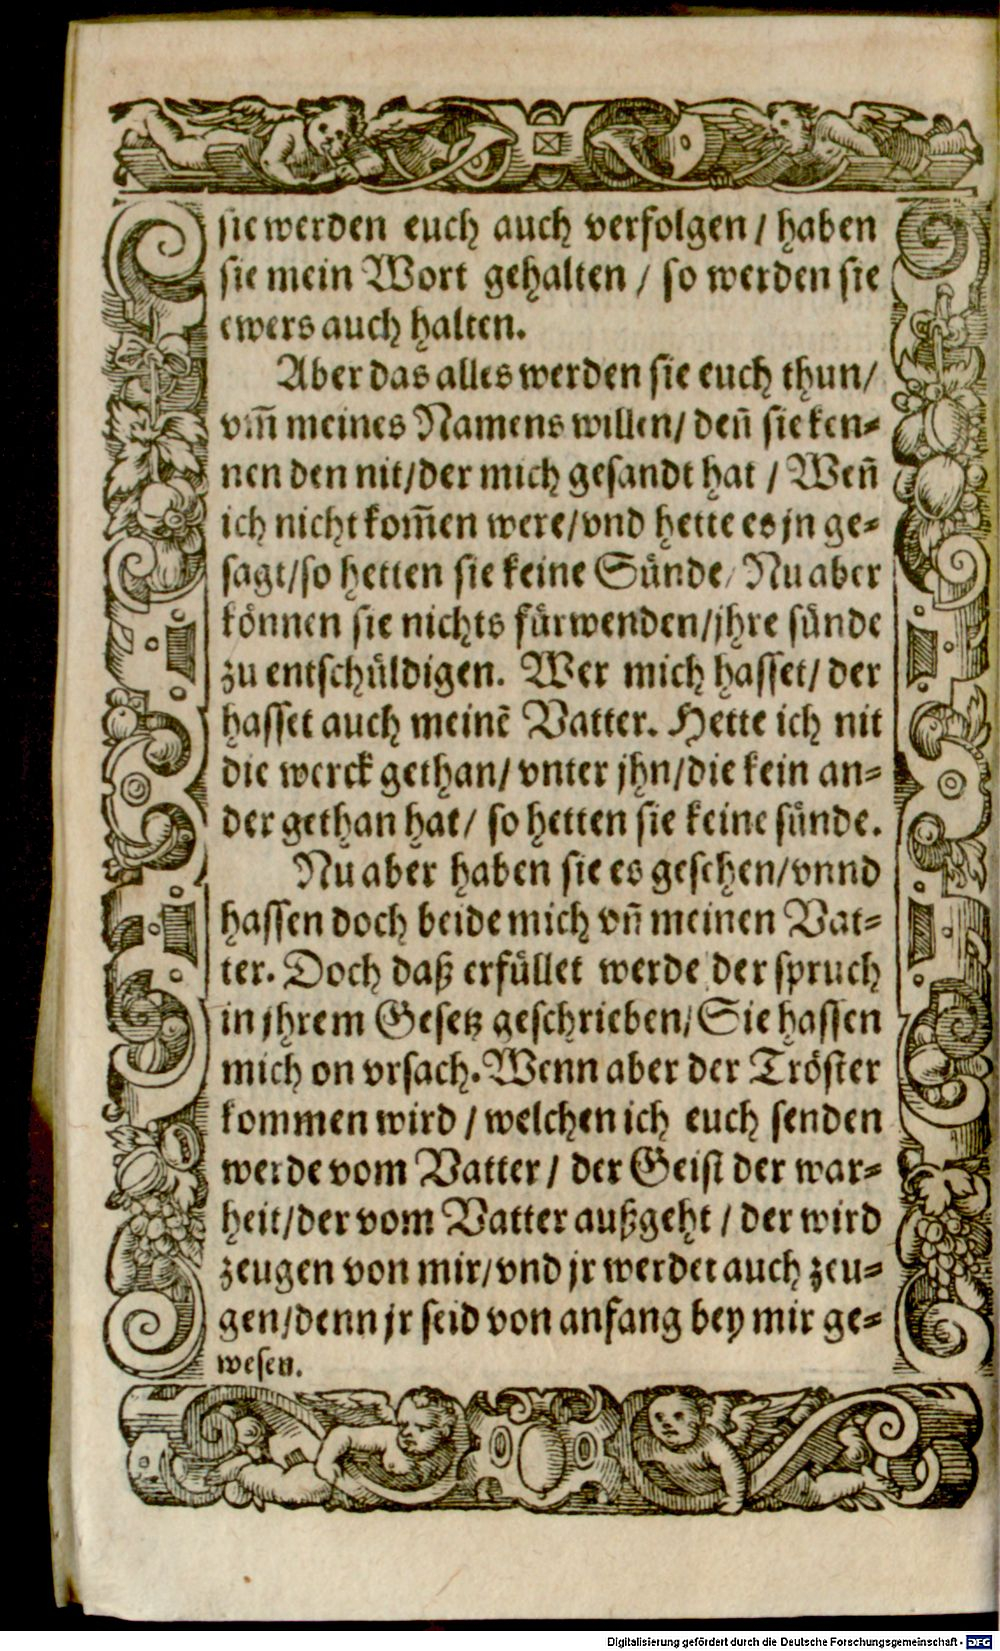 sie werden euch auch verfolgen / haben
sie mein Wort gehalten / so werden sie
ewers auch halten.
Aber das alles werden sie euch thun/
vm̃ meines Namens willen/ deñ sie ken⸗
nen den nit/der mich gesandt hat / Weñ
ich nicht kom̃en were/vnd hette es jn ge⸗
sagt/so hetten sie keine Sünde/ Nu aber
können sie nichts fürwenden/jhre sünde
zu entschüldigen. Wer mich hasset/ der
hasset auch meinẽ Vatter. Hette ich nit
die werck gethan/ vnter jhn/die kein an⸗
der gethan hat/ so hetten sie keine sünde.
Nu aber haben sie es gesehen/vnnd
hassen doch beide mich vñ meinen Vat⸗
ter. Doch daß erfüllet werde der spruch
in jhrem Gesetz geschrieben/Sie hassen
mich on vrsach. Wenn aber der Tröster
kommen wird / welchen ich euch senden
werde vom Vatter / der Geist der war⸗
heit/der vom Vatter außgeht / der wird
zeugen von mir/vnd jr werdet auch zeu⸗
gen/denn jr seid von anfang bey mir ge⸗
wesen.
Digitalisierung gefördert durch die Deutsche Forschungsgemeinschaft - DFG